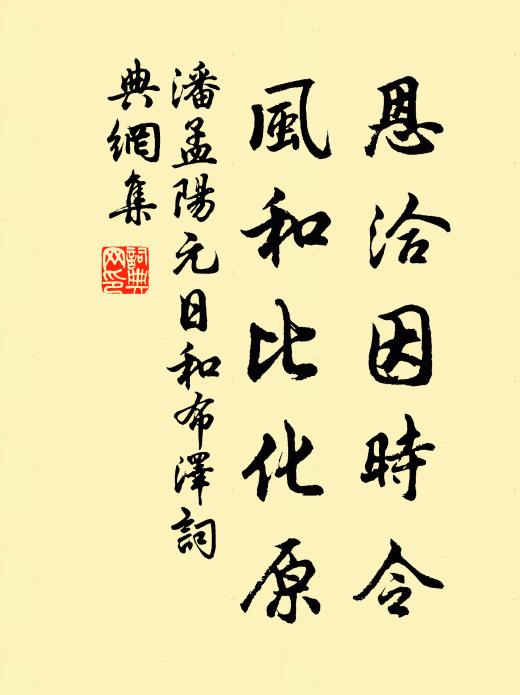 恩洽因時令
風和比化原
潘孟陽元日和布澤詞
典網集
詞典
网印